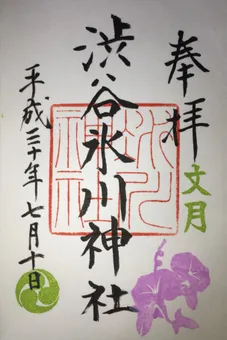 奉拝
文月
渋谷氷川神社
平成三十年七月十日